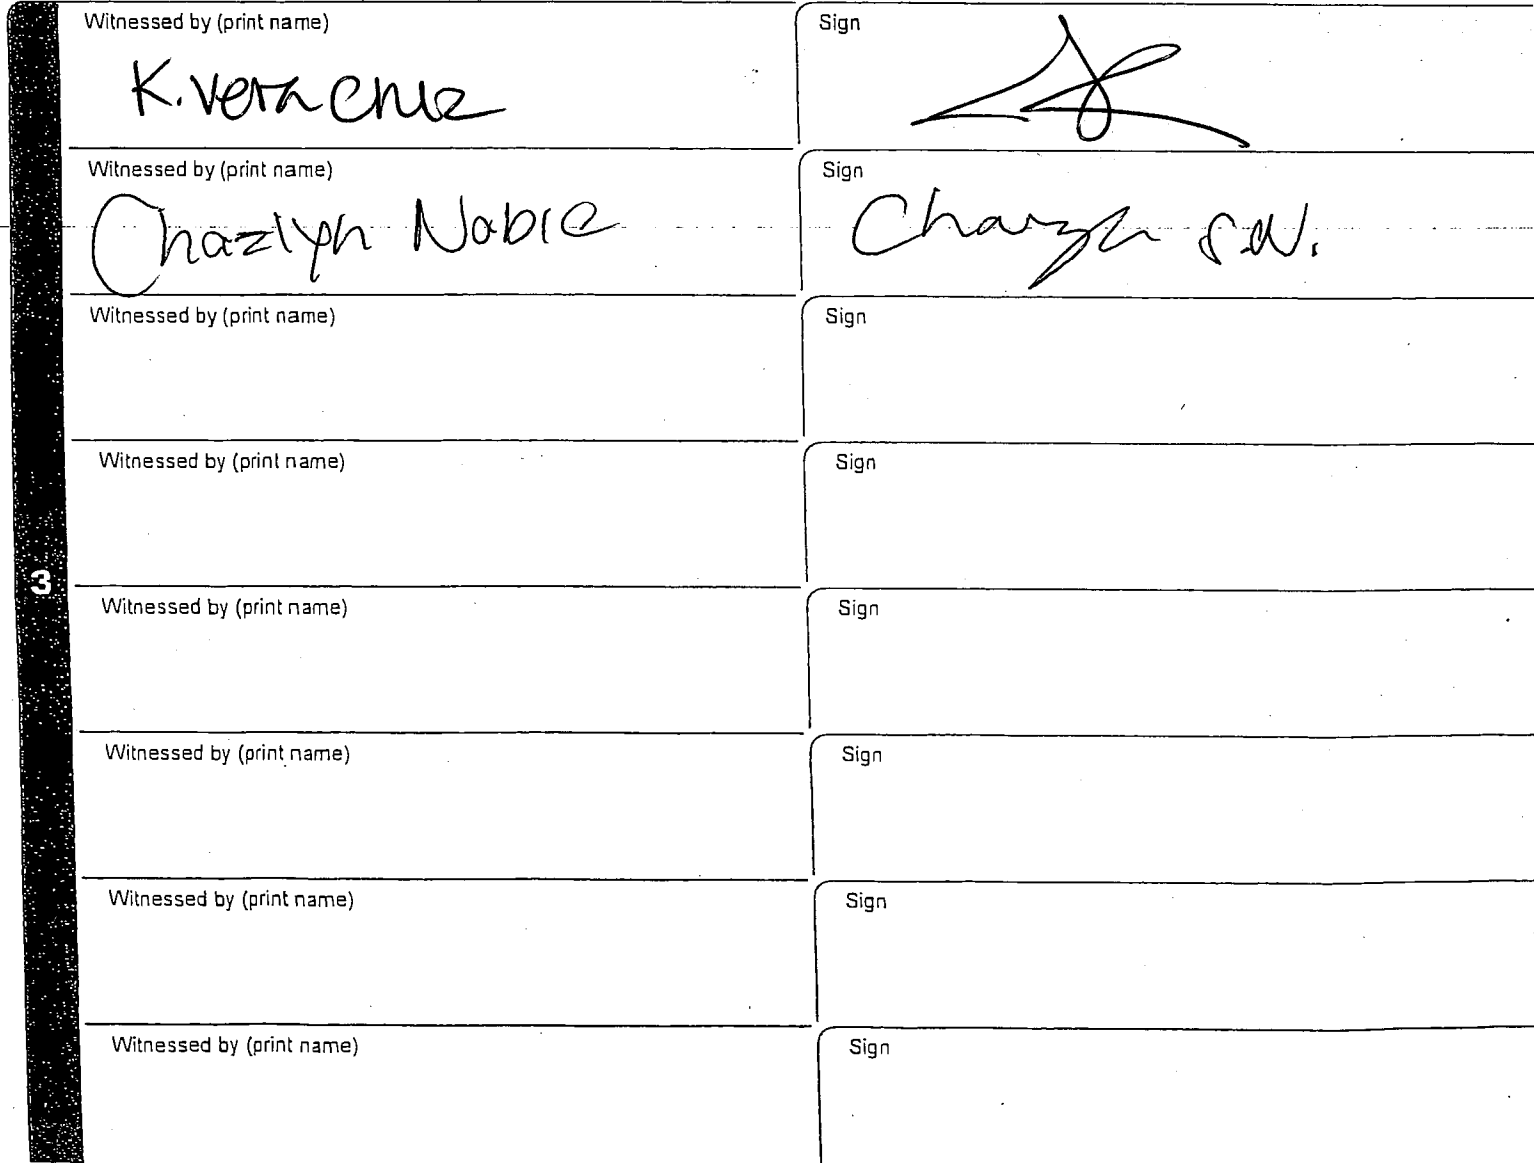 Witnessed by (print name) Sign
K. Vera Cruz
Witnessed by (print name) Sign
Chazlyn Nabie Chazlyn S.N.
Witnessed by (print name) Sign
Witnessed by (print name) Sign
3
Witnessed by (print name) Sign
Witnessed by (print name) Sign
Witnessed by (print name) Sign
Witnessed by (print name) Sign